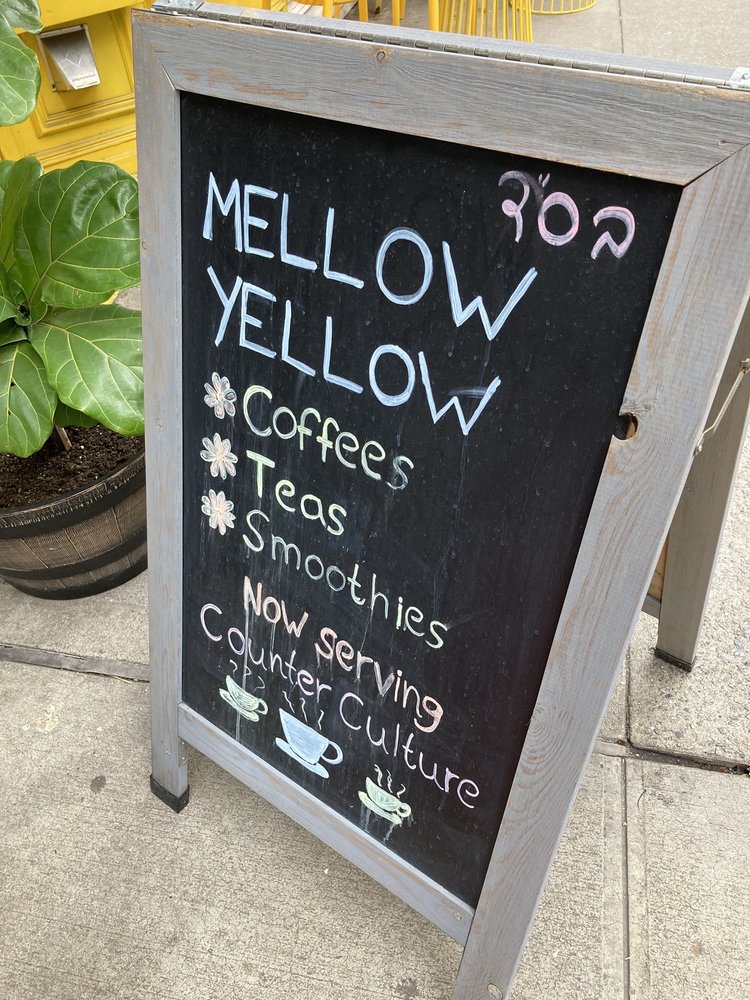 בס"ד
MELLOW
YELLOW
Coffees
Teas
Smoothies
Now serving
Counter Culture